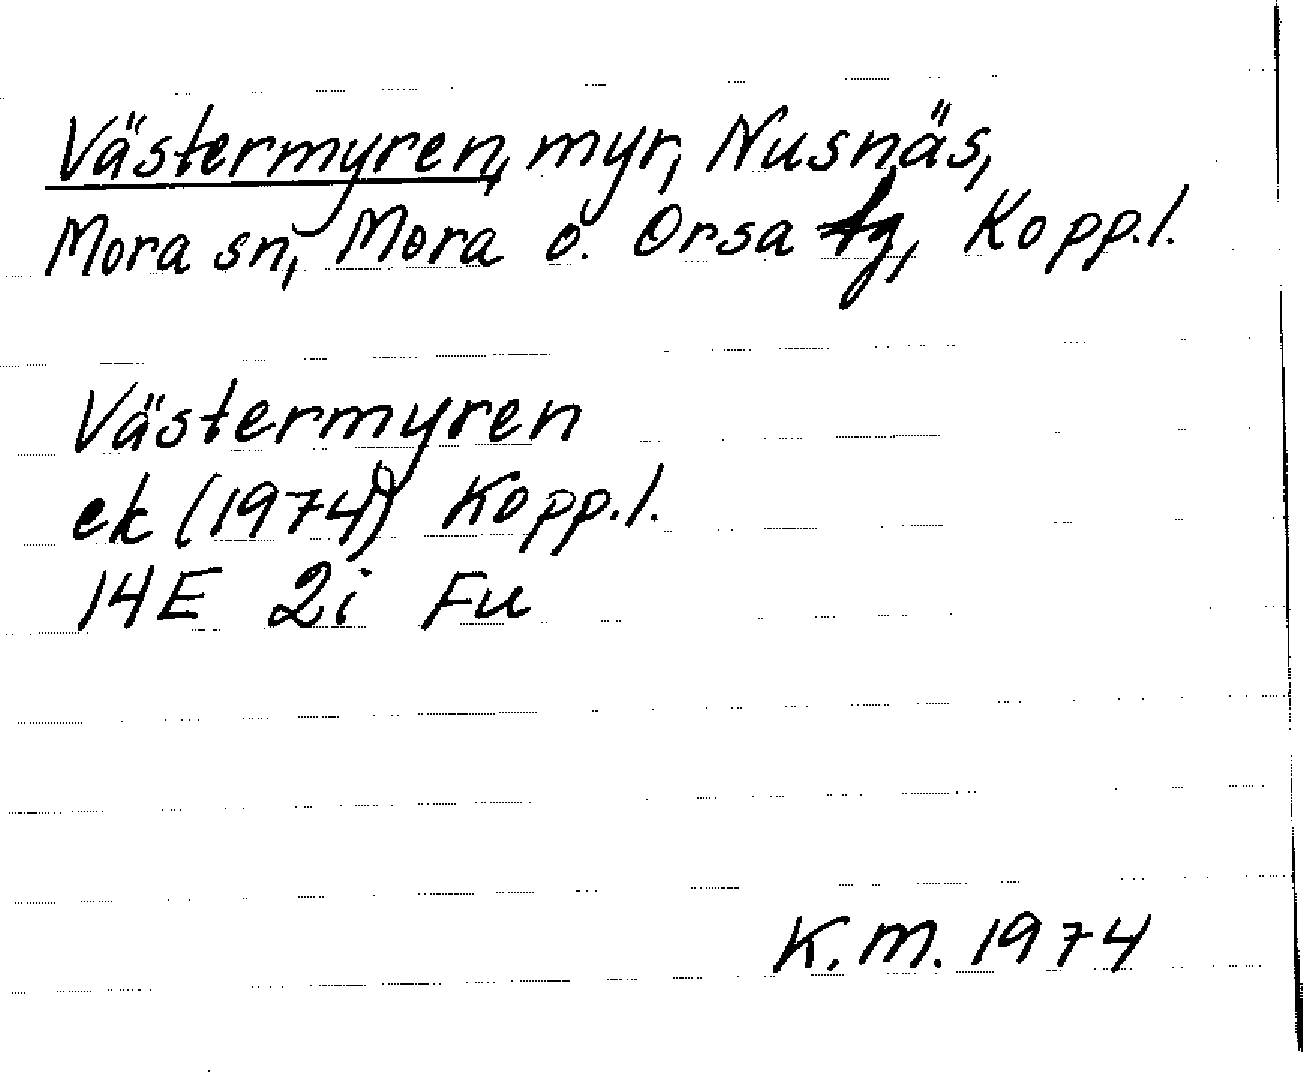 Västermyren, myr, Nusnäs,
Mora sn, Mora o. Orsa tg, Kopp.l.
Västermyren
ek (1974) Kopp.l.
14E 2i Fu
K.M. 1974